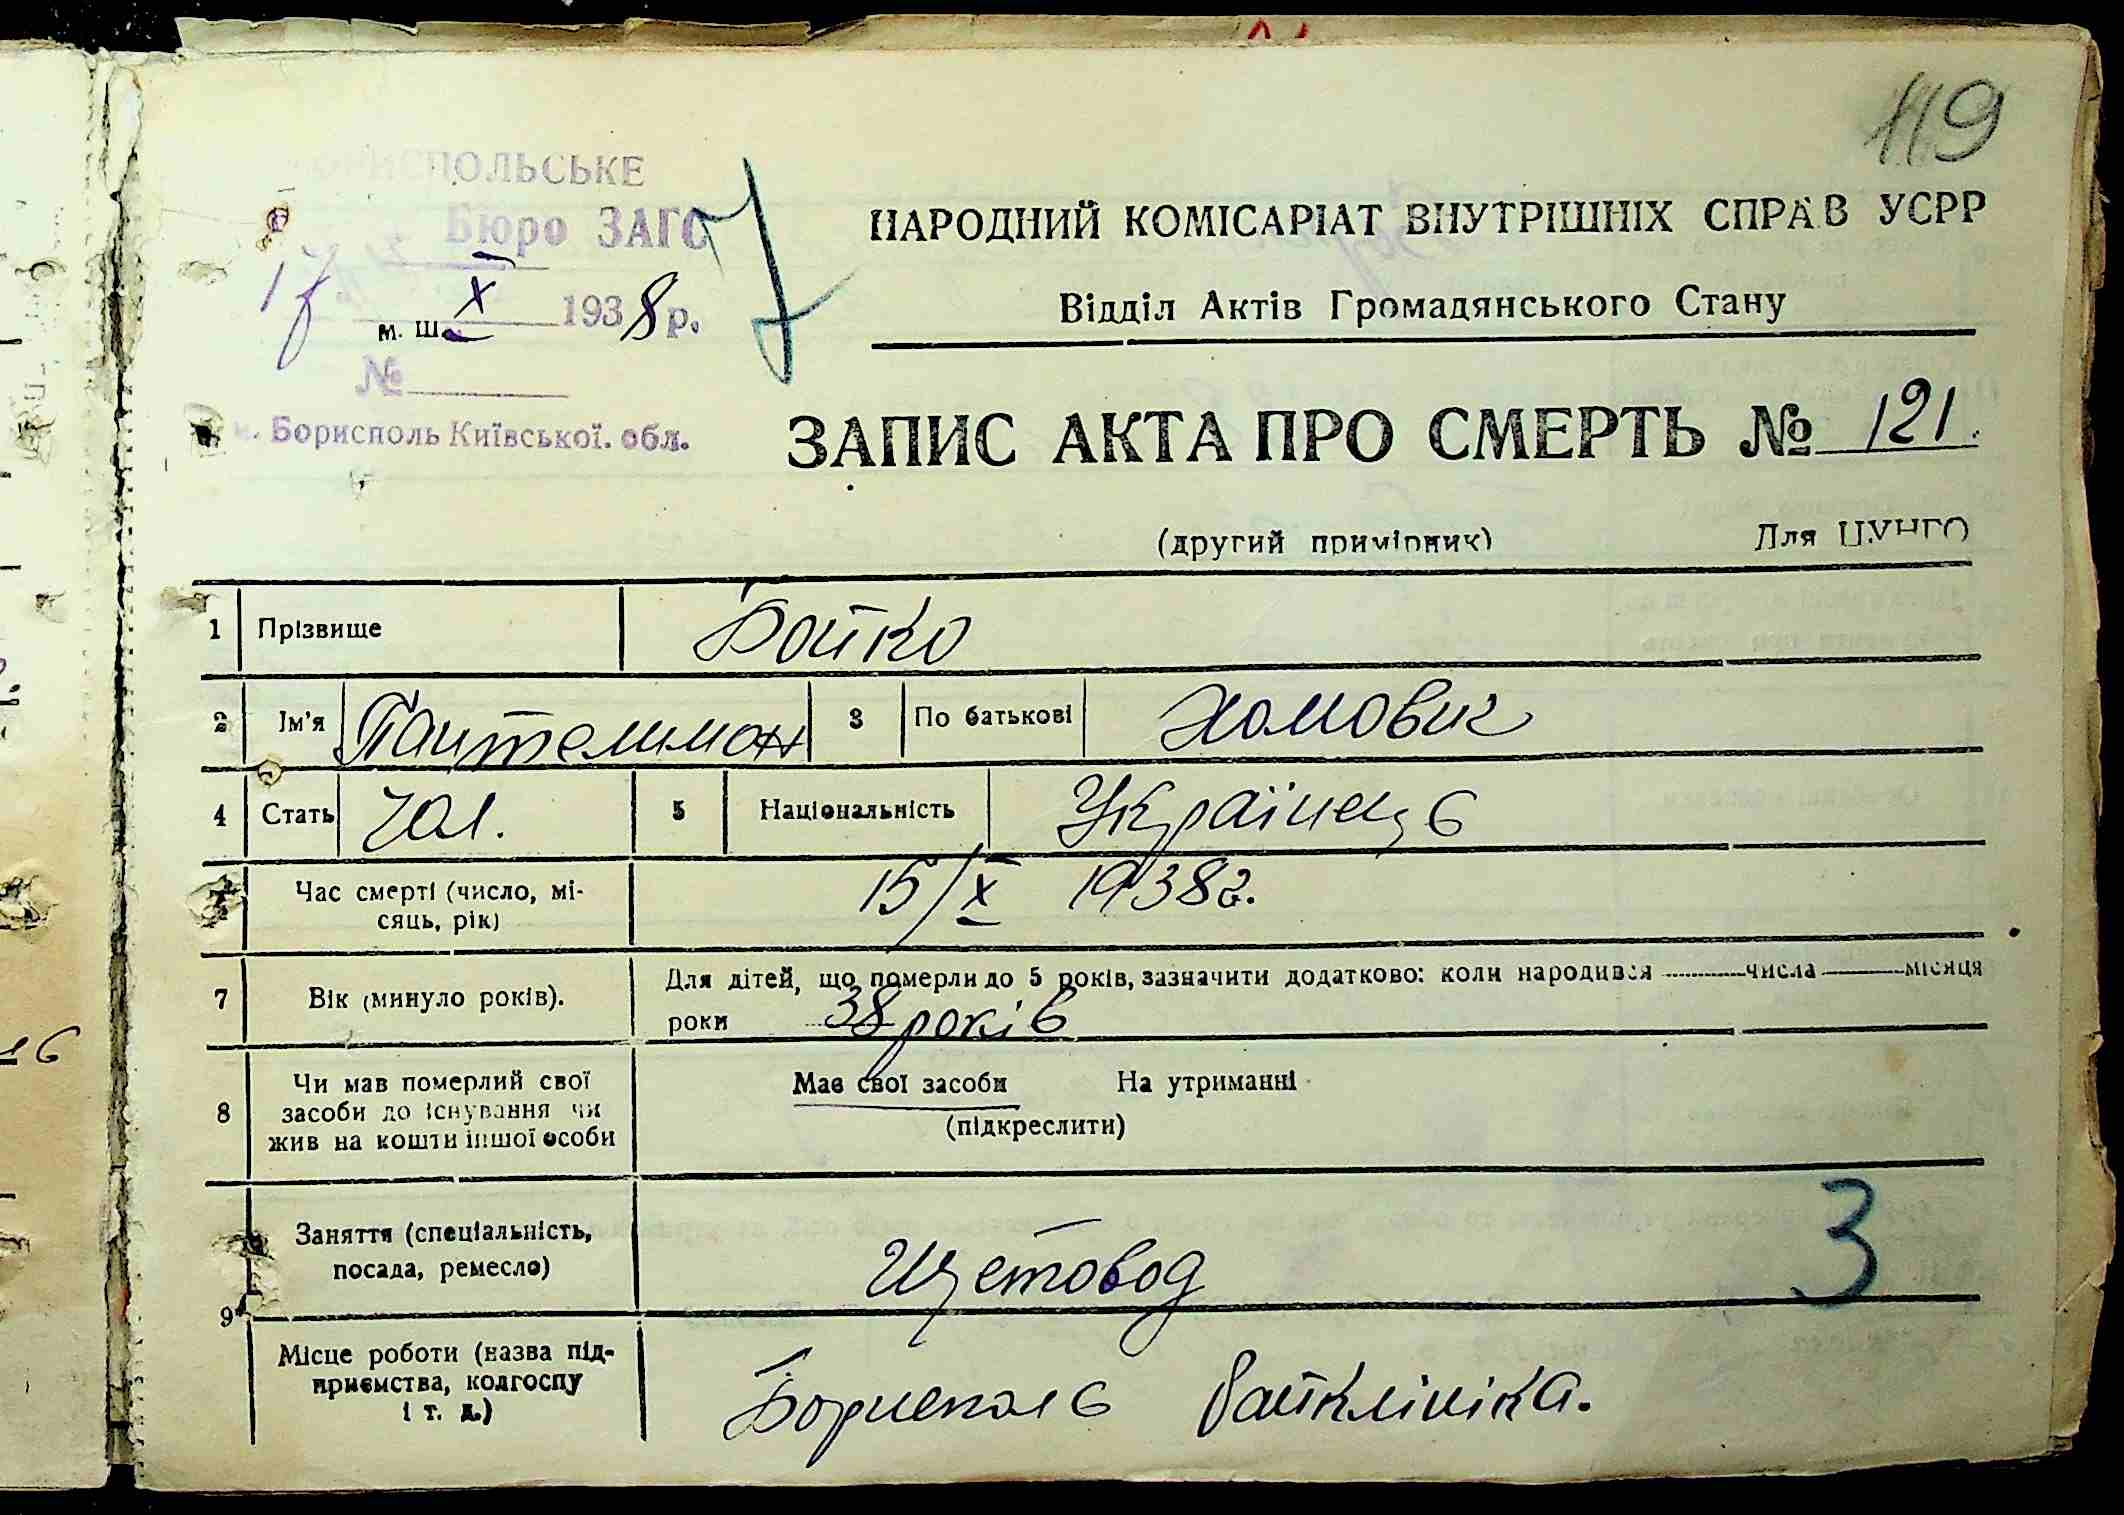 119
БОРИСПОЛЬСЬКЕ
Бюро ЗАГС
17 X 1938 р.
м. ш.
№
м. Борисполь Київської. обл.
НАРОДНИЙ КОМІСАРІАТ ВНУТРІШНІХ СПРАВ УСРР
Відділ Актів Громадянського Стану
ЗАПИС АКТА ПРО СМЕРТЬ № 121.
(другий примірник) Для ЦУНГО
1 Прізвище Бойко
2 Ім'я Пантелимон 3 По батькові Хомович
4 Стать чол. 5 Національність Українець
Час смерті (число, мі-
сяць, рік) 15/X 1938 г.
7 Вік (минуло років). Для дітей, що померли до 5 років, зазначити додатково: коли народився числа місяця
роки 38 років
8 Чи мав померлий свої
засоби до існування чи
жив на кошти іншої особи
Має свої засоби На утриманні
(підкреслити)
9 Заняття (спеціальність,
посада, ремесло) Щетовод
3
Місце роботи (назва під-
приємства, колгоспу
і т. д.) Бориспoль райклініка.